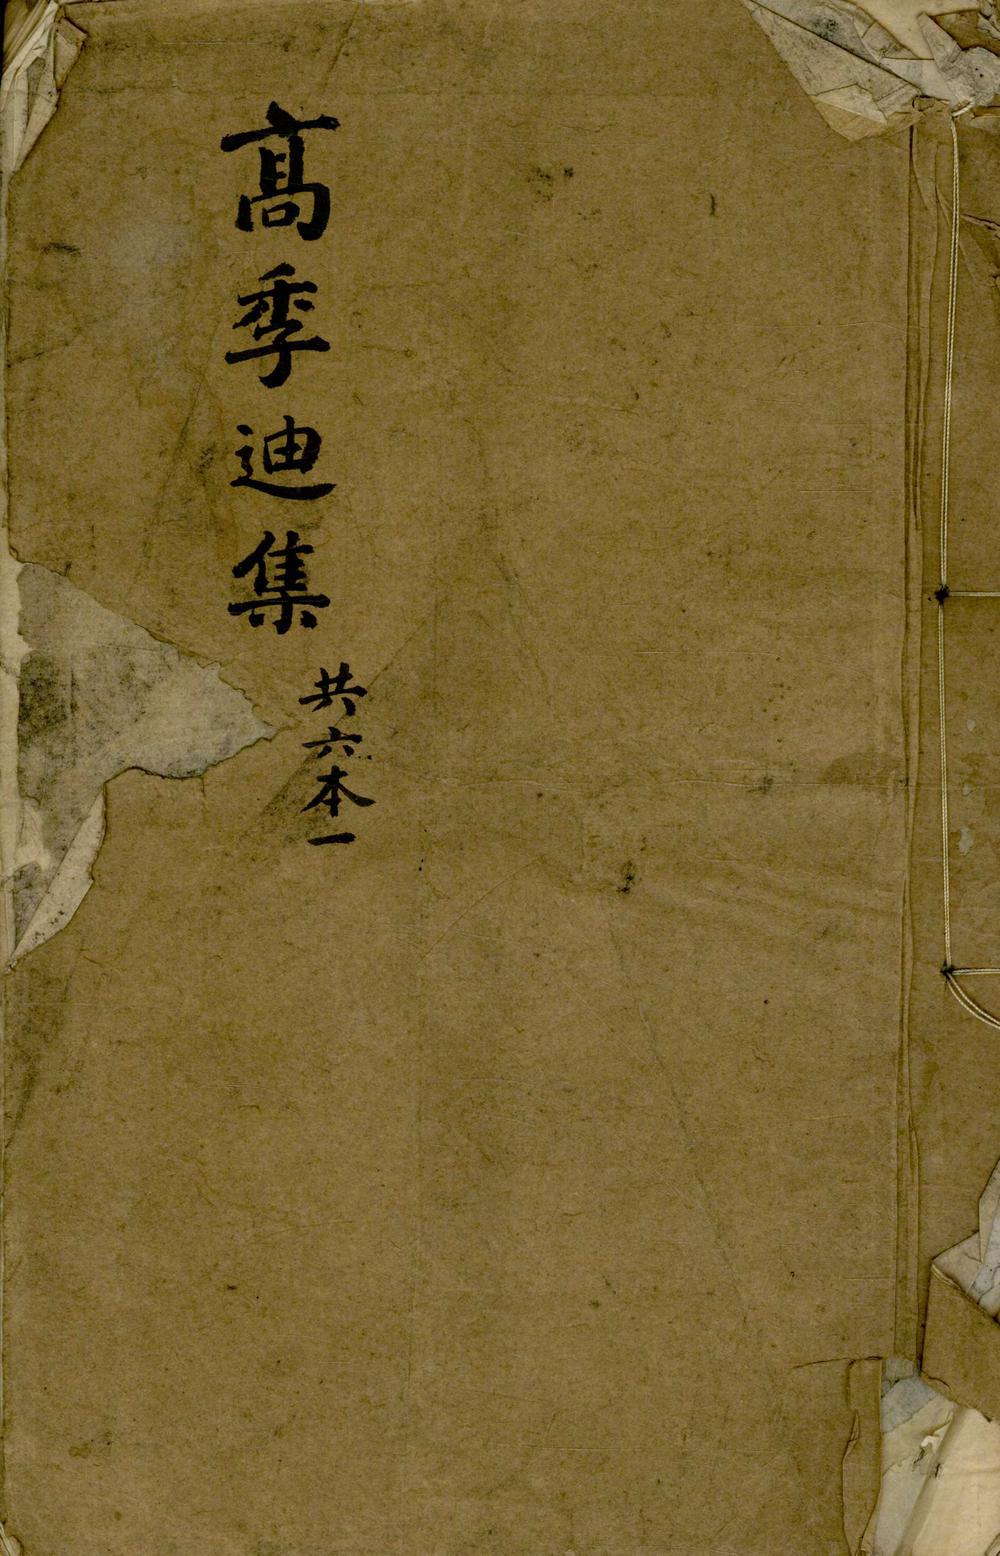 髙季迪集
共六本一